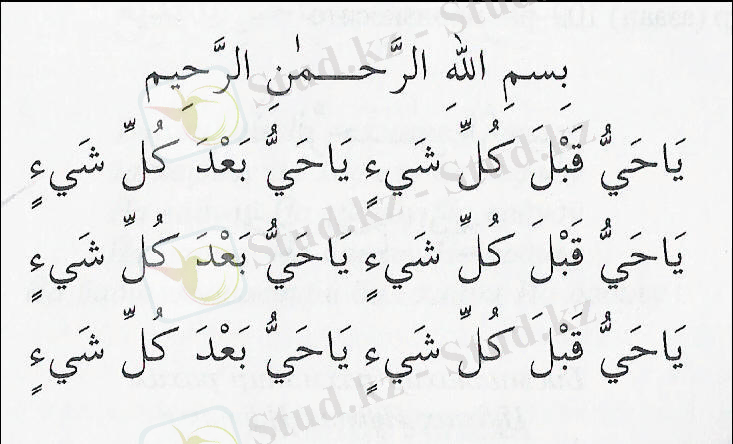 بِسمِ اللهِ الرَّحـــمٰنِ الرَّحِيمِ
يَاحَيُّ قَبْلَ كُلِّ شَيءٍ يَاحَيُّ بَعْدَ كُلِّ شَيءٍ
يَاحَيُّ قَبْلَ كُلِّ شَيءٍ يَاحَيُّ بَعْدَ كُلِّ شَيءٍ
يَاحَيُّ قَبْلَ كُلِّ شَيءٍ يَاحَيُّ بَعْدَ كُلِّ شَيءٍ
Stud.kz - Stud.kz
Stud.kz - Stud.kz
Stud.kz - Stud.kz